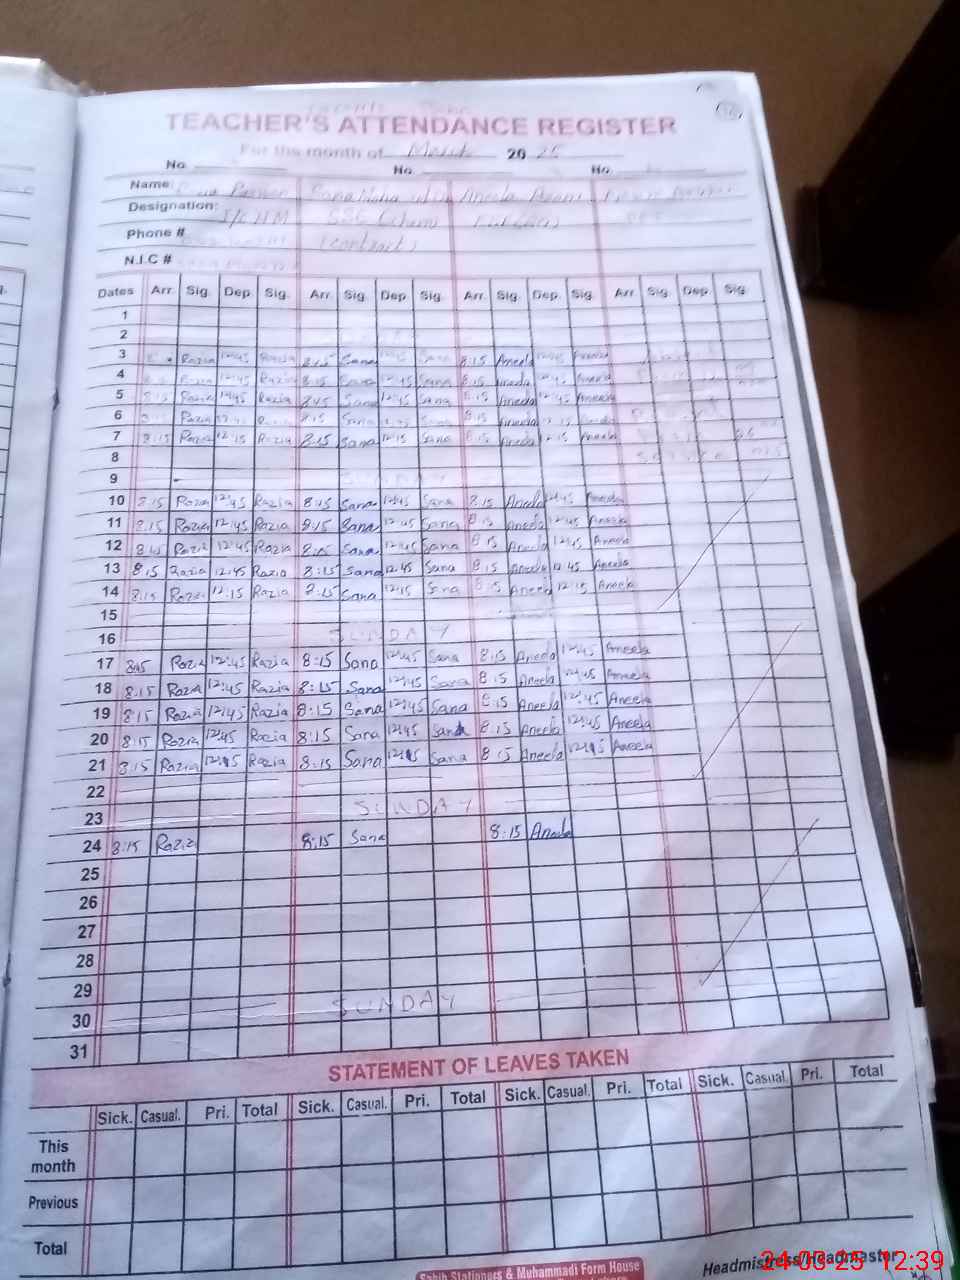 TEACHER'S ATTENDANCE REGISTER
For the month of March 2025
No. No. No.
Name: Sana Aneela
Designation: I/C HM SSE
Phone # (contract)
N.I.C #
Dates Arr. Sig. Dep. Sig. Arr. Sig. Dep. Sig. Arr. Sig. Dep. Sig. Arr. Sig. Dep. Sig.
1
2
3 Razia 12:45 Razia 8:15 Sana 12:45 Sana 8:15 Aneela 12:45 Aneela
4 Razia 12:45 Razia 8:15 Sana 12:45 Sana 8:15 Aneela 12:45 Aneela
5 8:15 Razia 12:45 Razia 8:15 Sana 12:45 Sana 8:15 Aneela 12:45 Aneela
6 8:15 Razia 12:45 Razia 8:15 Sana 12:45 Sana 8:15 Aneela 12:45
7 8:15 Razia 12:15 Razia 8:15 Sana 12:15 Sana 8:15 Aneela 12:15 Aneela
8
9 SUNDAY
10 8:15 Razia 12:45 Razia 8:15 Sana 12:45 Sana 8:15 Aneela 12:45 Aneela
11 8:15 Razia 12:45 Razia 8:15 Sana 12:45 Sana 8:15 Aneela 12:45 Aneela
12 8:15 Razia 12:45 Razia 8:15 Sana 12:45 Sana 8:15 Aneela 12:45 Aneela
13 8:15 Razia 12:45 Razia 8:15 Sana 12:45 Sana 8:15 Aneela 12:45 Aneela
14 8:15 Razia 12:15 Razia 8:15 Sana 12:15 Sana 8:15 Aneela 12:15 Aneela
15
16 SUNDAY
17 8:15 Razia 12:45 Razia 8:15 Sana 12:45 Sana 8:15 Aneela 12:45 Aneela
18 8:15 Razia 12:45 Razia 8:15 Sana 12:45 Sana 8:15 Aneela 12:45 Aneela
19 8:15 Razia 12:45 Razia 8:15 Sana 12:45 Sana 8:15 Aneela 12:45 Aneela
20 8:15 Razia 12:45 Razia 8:15 Sana 12:45 Sana 8:15 Aneela 12:45 Aneela
21 8:15 Razia 12:15 Razia 8:15 Sana 12:15 Sana 8:15 Aneela 12:15 Aneela
22
23 SUNDAY
24 8:15 Razia 8:15 Sana 8:15 Aneela
25
26
27
28
29
30 SUNDAY
31
STATEMENT OF LEAVES TAKEN
Sick. Casual. Pri. Total Sick. Casual. Pri. Total Sick. Casual. Pri. Total Sick. Casual. Pri. Total
This month
Previous
Total
Headmistress/Headmaster
Sabih Stationers & Muhammadi Form House
24-03-25 12:39